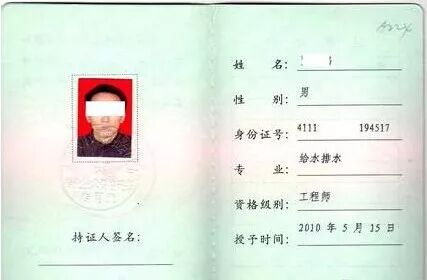 持证人签名：
姓 名：
性 别： 男
身份证号： 4111 194517
专 业： 给水排水
资格级别： 工程师
授予时间： 2010 年 5 月 15 日